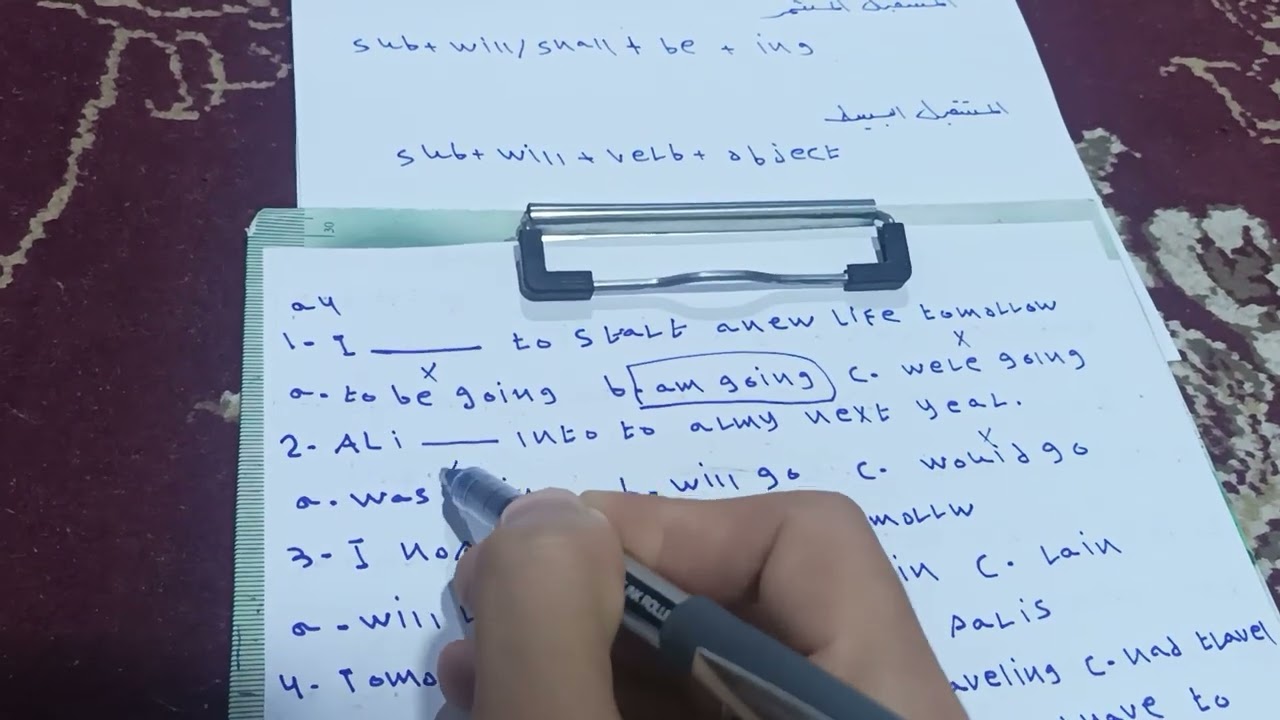 المستقبل المستمر
sub + will/shall + be + ing
المستقبل البسيط
sub + will + verb + object
30
a4
1- I ____ to start a new life tomorrow
a. to be going b. am going c. were going
2- ALi ____ into to army next year.
a. was will go c. would go
3- I
a. will in c. rain
Paris
4- c. had travel
have to